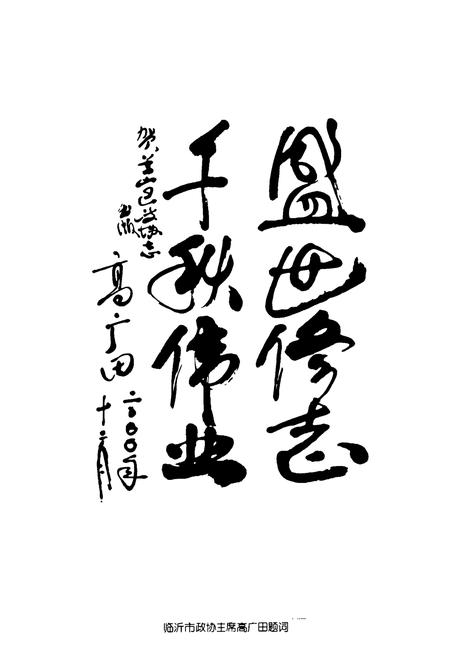 盛世修志
千秋伟业
贺兰山区政协志
出版
高广田
二〇〇〇年
十二月
临沂市政协主席高广田题词